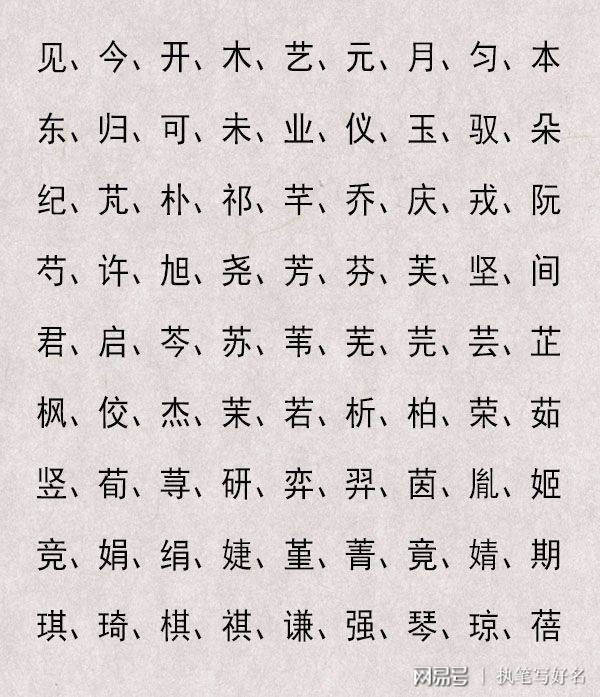 见、今、开、木、艺、元、月、匀、本
东、归、可、未、业、仪、玉、驭、朵
纪、芃、朴、祁、芊、乔、庆、戎、阮
芍、许、旭、尧、芳、芬、芙、坚、间
君、启、芩、苏、苇、芜、芫、芸、芷
枫、佼、杰、茉、若、析、柏、荣、茹
竖、荀、荨、研、弈、羿、茵、胤、姬
竞、娟、绢、婕、堇、菁、竟、婧、期
琪、琦、棋、祺、谦、强、琴、琼、蓓
网易号 | 执笔写好名